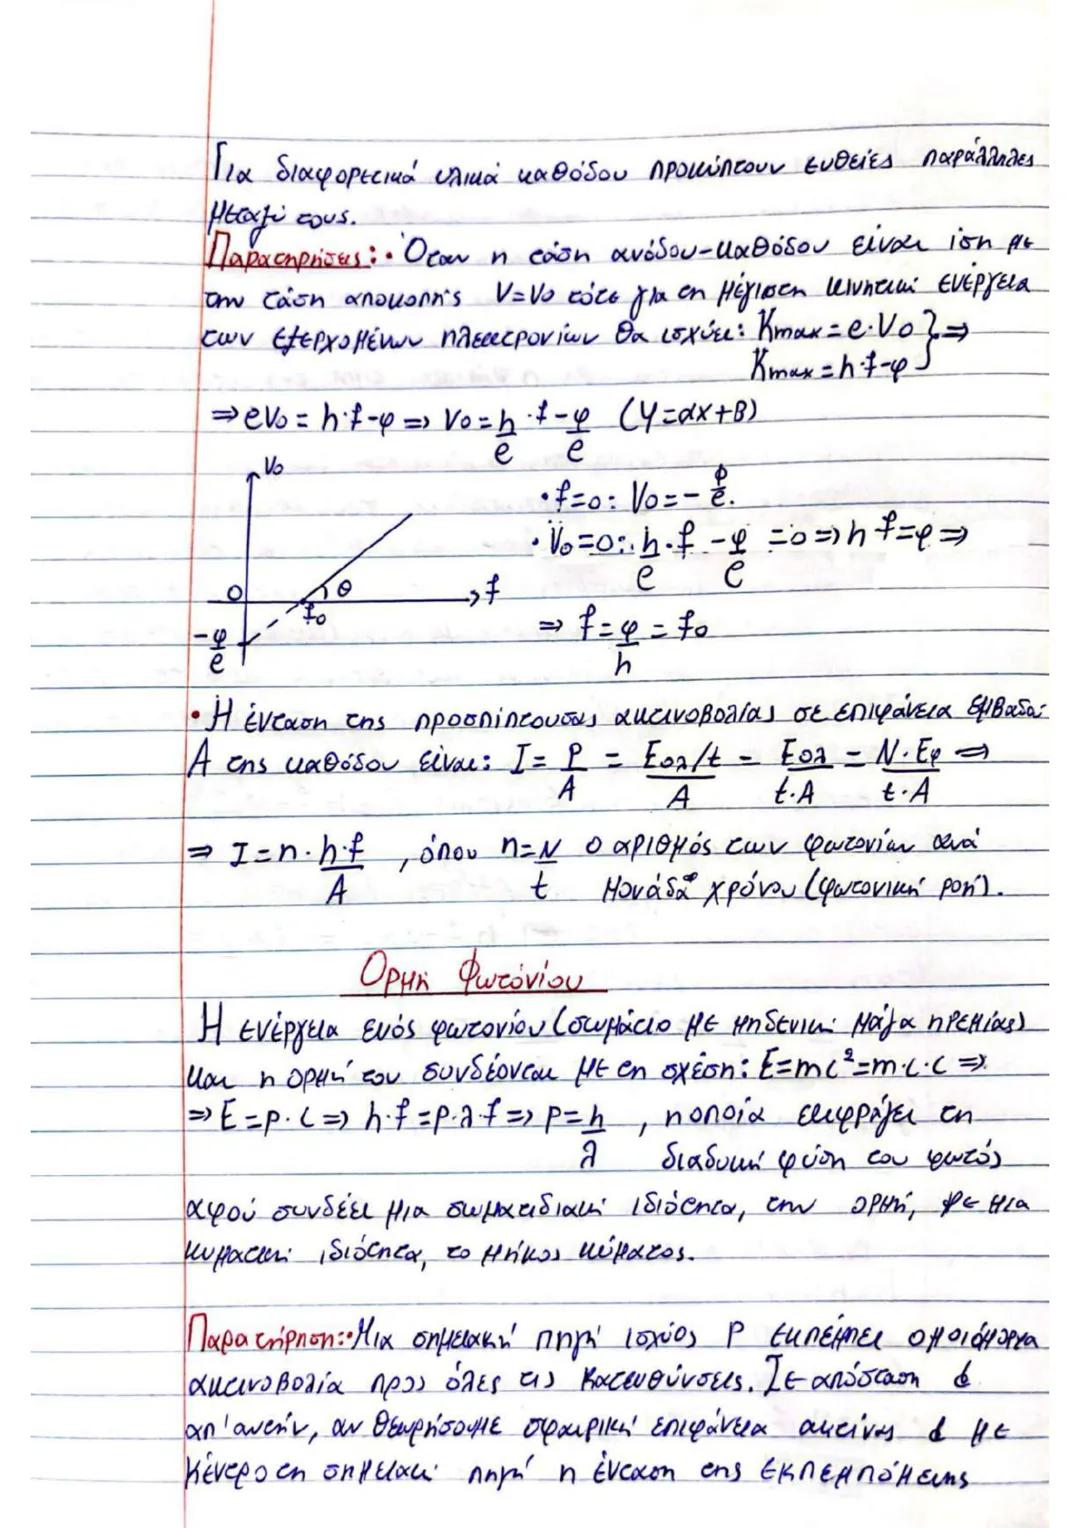 Για διαφορετικά υλικά καθόδου προκύπτουν ευθείες παράλληλες
μεταξύ τους.
Παρατηρήσεις: • Όταν η τάση ανόδου-καθόδου είναι ίση με
την τάση αποκοπής V=V₀ τότε για τη μέγιστη κινητική ενέργεια
των εξερχομένων ηλεκτρονίων θα ισχύει: Kmax = e·V₀ } ⇒
Kmax = h·f-φ
⇒ eV₀ = h·f-φ ⇒ V₀ = h/e · f - φ/e (Y=αx+β)
V₀
• f=0: V₀ = - φ/e.
• V₀=0: h/e · f - φ/e = 0 ⇒ h f = φ ⇒
O θ f
f₀
⇒ f = φ/h = f₀
-φ/e
• Η ένταση της προσπίπτουσας ακτινοβολίας σε επιφάνεια εμβαδού
A της καθόδου είναι: I = P/A = Eολ/t / A = Eολ / t·A = N·Eφ / t·A ⇒
⇒ I = n·h·f / A , όπου n = N/t ο αριθμός των φωτονίων ανά
μονάδα χρόνου (φωτονική ροή).
Ορμή Φωτονίου
Η ενέργεια ενός φωτονίου (σωμάτιο με μηδενική μάζα ηρεμίας)
και η ορμή του συνδέονται με τη σχέση: E=mc²=m·c·c ⇒
⇒ E = p·c ⇒ h·f = p·λ·f ⇒ p = h/λ , η οποία εκφράζει τη
διαδυκή φύση του φωτός
αφού συνδέει μια σωματιδιακή ιδιότητα, την ορμή, με μια
κυματική ιδιότητα, το μήκος κύματος.
Παρατήρηση: • Μια σημειακή πηγή ισχύος P εκπέμπει ομοιόμορφα
ακτινοβολία προς όλες τις κατευθύνσεις. Σε απόσταση d
απ' αυτήν, αν θεωρήσουμε σφαιρική επιφάνεια ακτίνας d με
κέντρο τη σημειακή πηγή η ένταση της εκπεμπόμενης